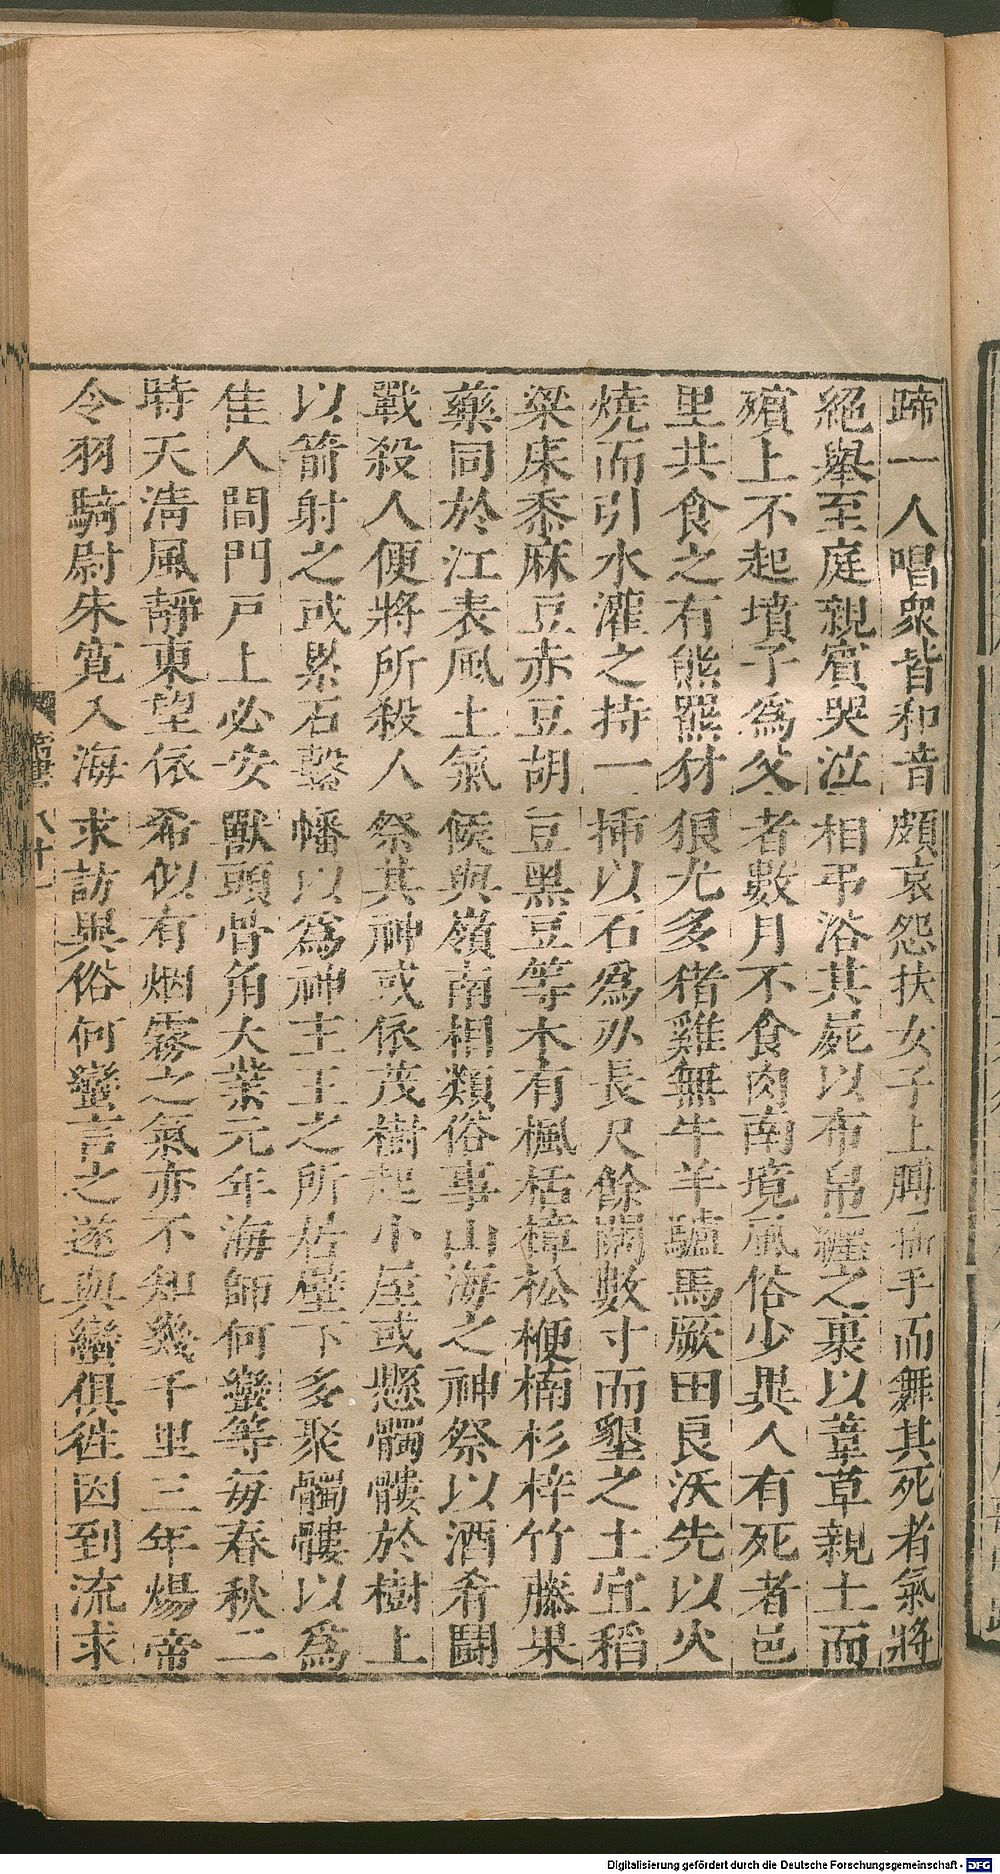 蹄一人唱眾皆和音頗哀怨扶女子上膊搖手而舞其死者氣將
絕舉至庭親賓哭泣相弔浴其屍以布帛纒之裹以葦草親土而
殯上不起墳子為父者數月不食肉南境風俗少異人有死者邑
里共食之有熊羆豺狼尤多猪雞無牛羊驢馬厥田良沃先以火
燒而引水灌之持一揷以石為刅長尺餘闊數寸而墾之土宜稻
粱床黍麻豆赤豆胡豆黑豆等木有楓栝樟松楩楠杉梓竹藤果
藥同於江表風土氣候與嶺南相類俗事山海之神祭以酒肴鬪
戰殺人便將所殺人祭其神或依茂樹起小屋或懸髑髏於樹上
以箭射之或累石繫幡以為神主王之所居壁下多聚髑髏以為
佳人間門戶上必安獸頭骨角大業元年海師何蠻等每春秋二
時天清風靜東望依希似有烟霧之氣亦不知幾千里三年煬帝
令羽騎尉朱寬入海求訪異俗何蠻言之遂與蠻俱往因到流求
Digitalisierung gefördert durch die Deutsche Forschungsgemeinschaft - DFG